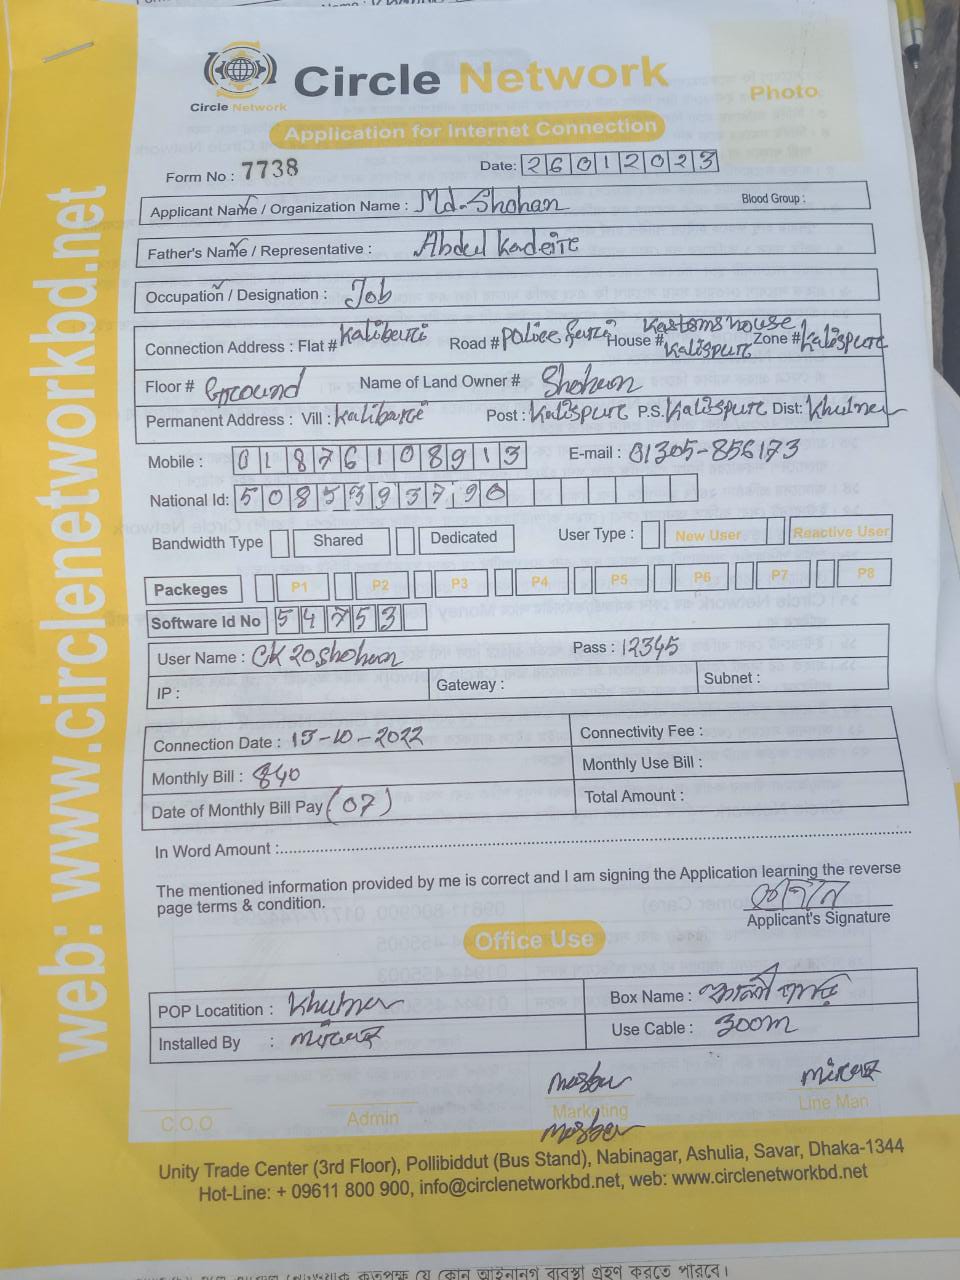 Circle Network
Circle Network
Photo
Application for Internet Connection
Form No : 7738
Date: 26012023
Applicant Name / Organization Name : Md. Shohan
Blood Group :
Father's Name / Representative : Abdul
Occupation / Designation : Job
Connection Address : Flat # Road # House # Zone #
Floor # Ground Name of Land Owner #
Permanent Address : Vill : Post : P.S. Dist:
Mobile : 01876108913 E-mail : 01305-856173
National Id: 5085393790
Bandwidth Type Shared Dedicated User Type : New User Reactive User
Packeges P1 P2 P3 P4 P5 P6 P7 P8
Software Id No 54753
User Name : Pass : 12345
IP : Gateway : Subnet :
Connection Date : 15-10-2022 Connectivity Fee :
Monthly Bill : 840 Monthly Use Bill :
Date of Monthly Bill Pay (07) Total Amount :
In Word Amount :
The mentioned information provided by me is correct and I am signing the Application learning the reverse
page terms & condition.
Applicant's Signature
Office Use
POP Locatition : Box Name :
Installed By : Use Cable : 300m
C.O.O Admin Marketing Line Man
Unity Trade Center (3rd Floor), Pollibiddut (Bus Stand), Nabinagar, Ashulia, Savar, Dhaka-1344
Hot-Line: + 09611 800 900, info@circlenetworkbd.net, web: www.circlenetworkbd.net
web: www.circlenetworkbd.net